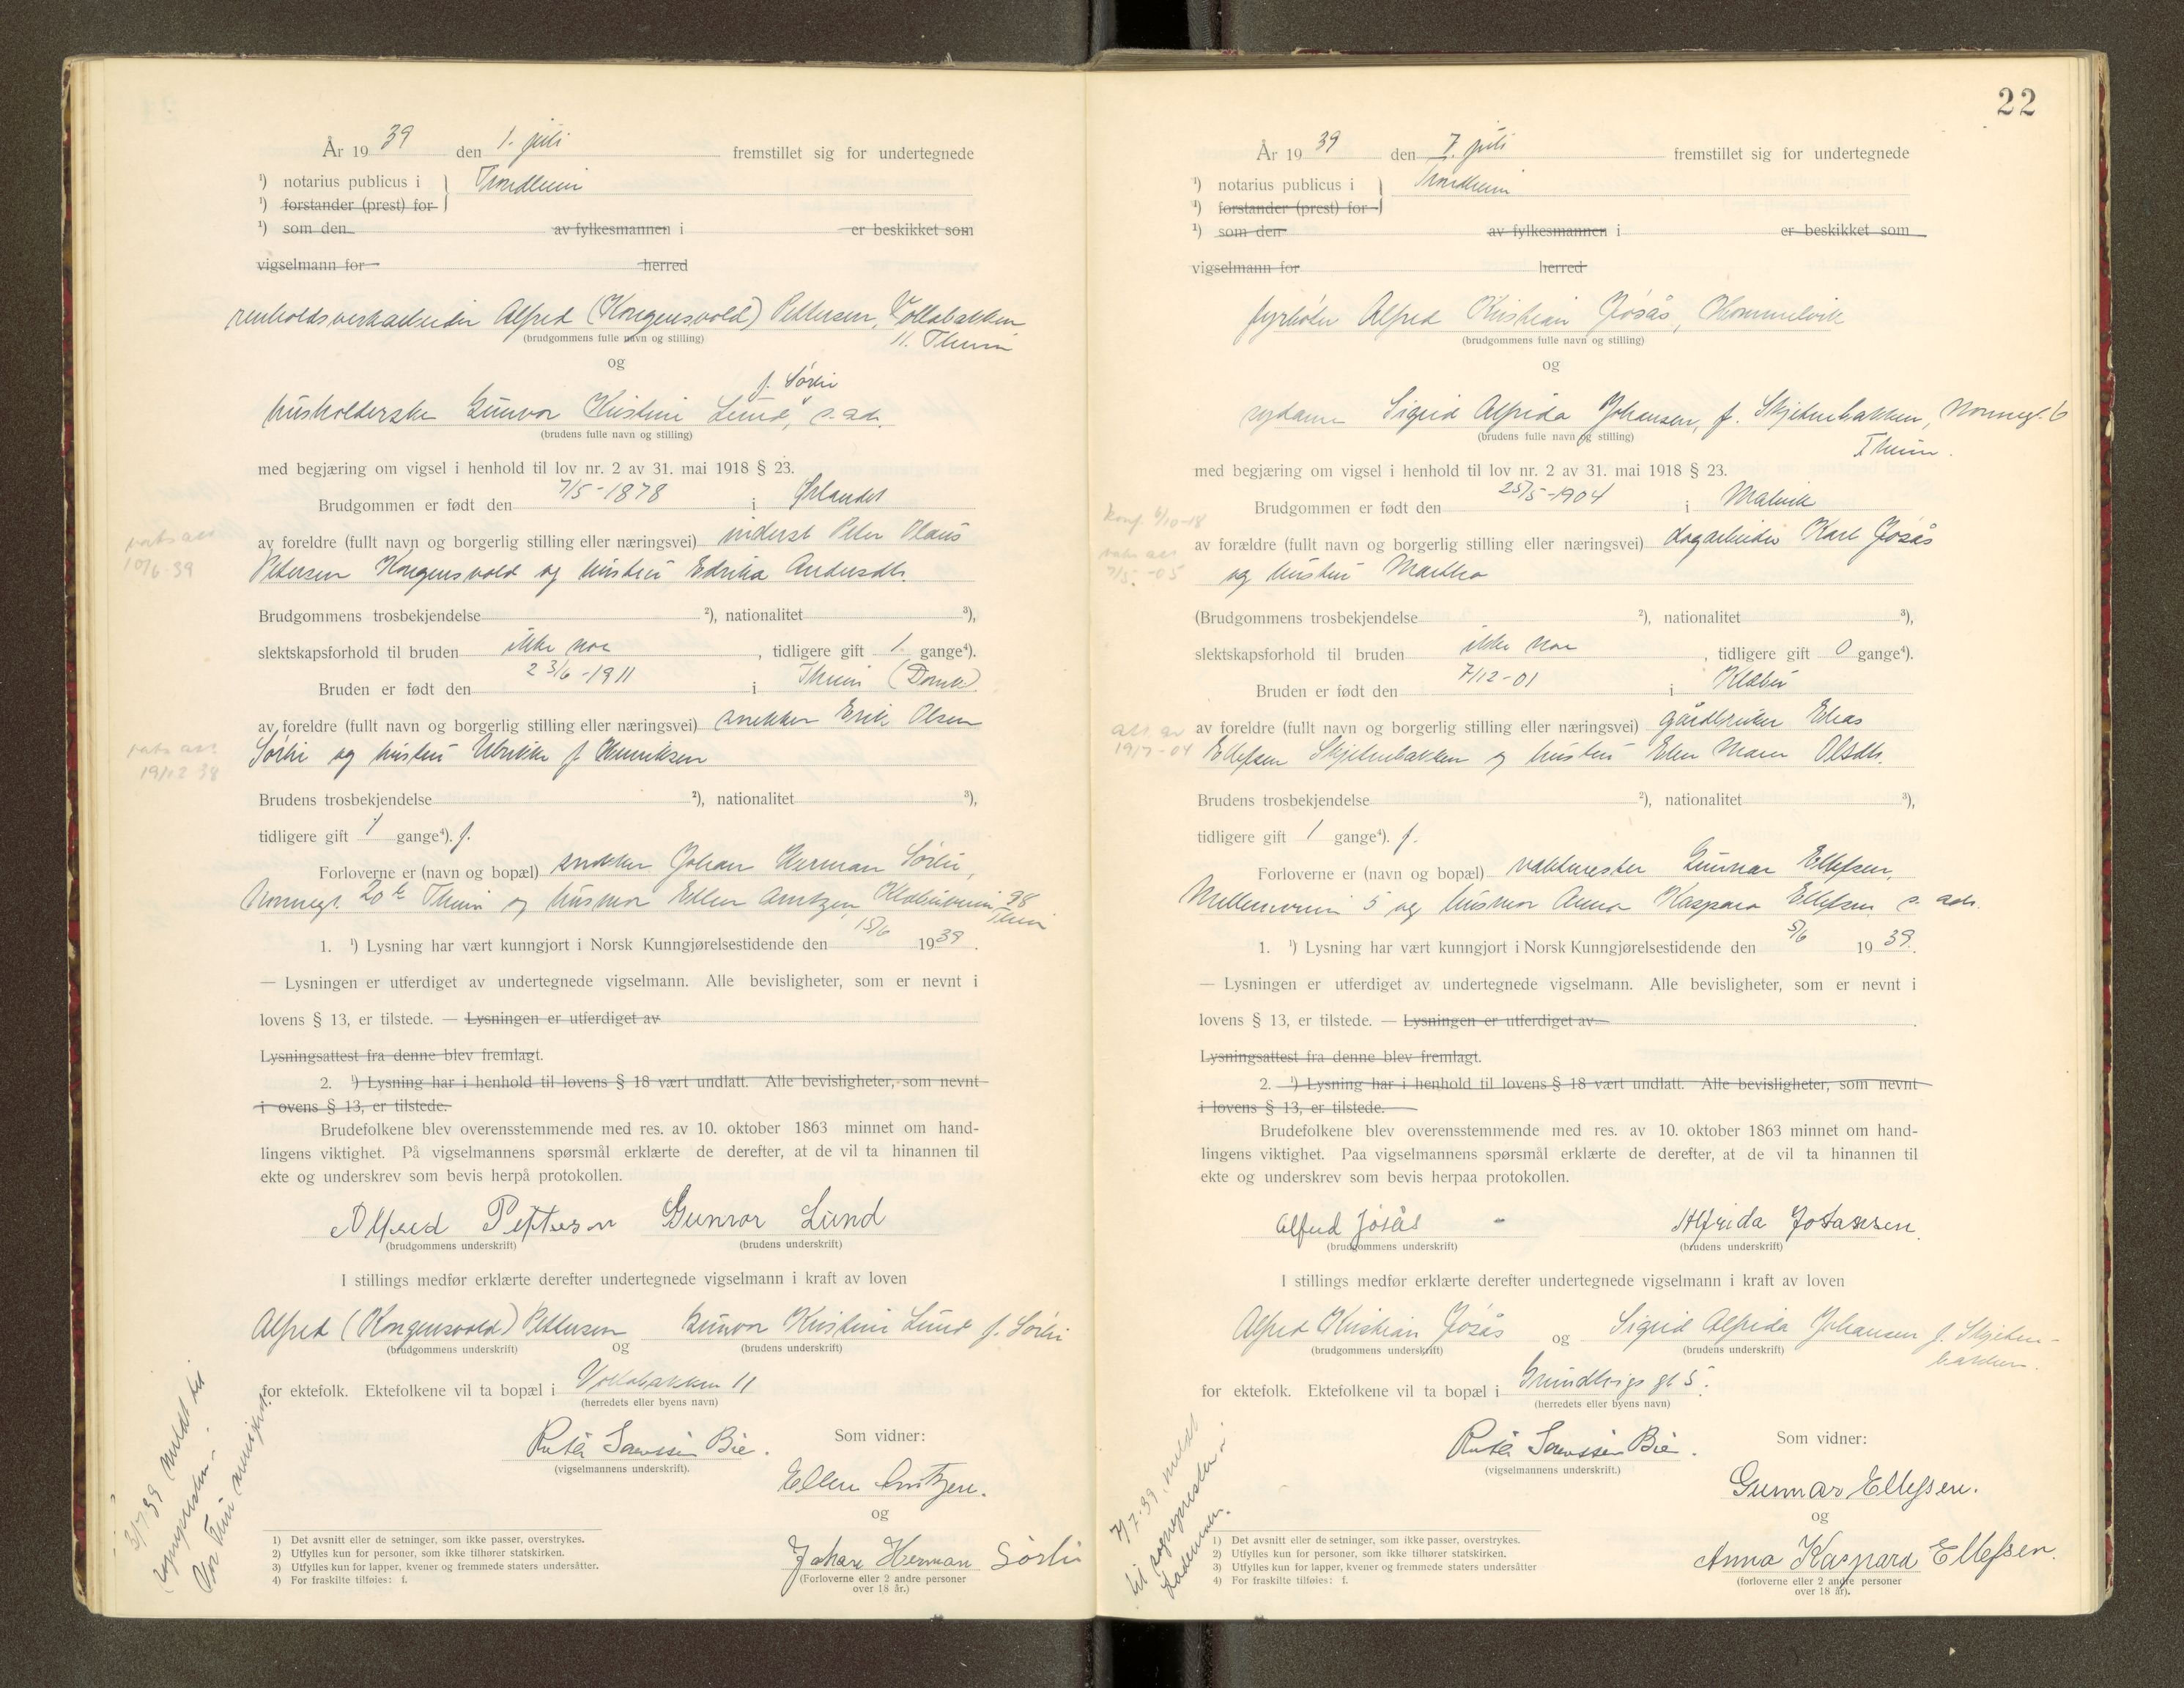 År 19 39 den 1. juli fremstillet sig for undertegnede
¹) notarius publicus i } Trondheim
¹) forstander (prest) for
¹) som den av fylkesmannen i er beskikket som
vigselmann for herred
renholdsverkarbeider Alfred (Kongensvold) Pettersen, Vollabakken
(brudgommens fulle navn og stilling)
11. Theim
og
f. Sørli
husholderske Gunvor Kristine Lund, s. ad.
(brudens fulle navn og stilling)
med begjæring om vigsel i henhold til lov nr. 2 av 31. mai 1918 § 23.
Brudgommen er født den 7/5-1878 i Ørlandet
av foreldre (fullt navn og borgerlig stilling eller næringsvei) inderst Peter Olaus
Petersen Kongensvold og hustru Edrika Andersdtr.
vaks att
10/6-39
Brudgommens trosbekjendelse ²), nationalitet ³),
slektskapsforhold til bruden ikke noe , tidligere gift 1 gange⁴).
Bruden er født den 23/6-1911 i Theim (Domk.)
av foreldre (fullt navn og borgerlig stilling eller næringsvei) snekker Erik Olsen
Sørli og hustru Ulrikke f. Henriksen
vaks att
19/12 38
Brudens trosbekjendelse ²), nationalitet ³),
tidligere gift 1 gange⁴). f.
Forloverne er (navn og bopæl) snekker Johan Herman Sørli,
Nonnegt. 20 b Theim og husmor Ellen Arntzen, Klæbuveien 98
Theim
1. ¹) Lysning har vært kunngjort i Norsk Kunngjørelsestidende den 15/6 1939.
— Lysningen er utferdiget av undertegnede vigselmann. Alle bevisligheter, som er nevnt i
lovens § 13, er tilstede. — Lysningen er utferdiget av
Lysningsattest fra denne blev fremlagt.
2. ¹) Lysning har i henhold til lovens § 18 vært undlatt. Alle bevisligheter, som nevnt
i ovens § 13, er tilstede.
Brudefolkene blev overensstemmende med res. av 10. oktober 1863 minnet om hand-
lingens viktighet. På vigselmannens spørsmål erklærte de derefter, at de vil ta hinannen til
ekte og underskrev som bevis herpå protokollen.
Alfred Pettersen Gunvor Lund
(brudgommens underskrift) (brudens underskrift)
I stillings medfør erklærte derefter undertegnede vigselmann i kraft av loven
Alfred (Kongensvold) Pettersen og Gunvor Kristine Lund f. Sørli
(brudgommens underskrift) (brudens underskrift)
for ektefolk. Ektefolkene vil ta bopæl i Vollabakken 11
(herredets eller byens navn)
(vigselmannens underskrift).
Som vidner:
Ellen Arntzen.
og
Johan Herman Sørli
(Forloverne eller 2 andre personer
over 18 år.)
3/7 39 meldt til
sognepresten i
Vor Frue menighet.
1) Det avsnitt eller de setninger, som ikke passer, overstrykes.
2) Utfylles kun for personer, som ikke tilhører statskirken.
3) Utfylles kun for lapper, kvener og fremmede staters undersåtter.
4) For fraskilte tilføies: f.
22
År 19 39 den 7. juli fremstillet sig for undertegnede
¹) notarius publicus i } Trondheim
¹) forstander (prest) for
¹) som den av fylkesmannen i er beskikket som
vigselmann for herred
fyrbøter Alfred Kristian Jøsås, Hommelvik
(brudgommens fulle navn og stilling)
og
sydame Sigrid Alfrida Johansen, f. Skjetnebakken, Nonnegt. 6
(brudens fulle navn og stilling)
Theim.
med begjæring om vigsel i henhold til lov nr. 2 av 31. mai 1918 § 23.
Brudgommen er født den 25/5-1904 i Malvik
konf. 6/10-18
av forældre (fullt navn og borgerlig stilling eller næringsvei) dagarbeider Karl Jøsås
vaks att
7/5.-05
og hustru Martha
(Brudgommens trosbekjendelse ²), nationalitet ³),
slektskapsforhold til bruden ikke noe , tidligere gift 0 gange⁴).
Bruden er født den 7/12-01 i Klæbu
av foreldre (fullt navn og borgerlig stilling eller næringsvei) gårdbruker Elias
att. av
19/7-04
Ellefsen Skjetnebakken og hustru Elen Maren Olsdtr.
Brudens trosbekjendelse ²), nationalitet ³),
tidligere gift 1 gange⁴). f.
Forloverne er (navn og bopæl) vaktmester Gunnar Ellefsen,
Mellemveien 5 og husmor Anna Kaspara Ellefsen s. adr.
1. ¹) Lysning har vært kunngjort i Norsk Kunngjørelsestidende den 5/6 1939.
— Lysningen er utferdiget av undertegnede vigselmann. Alle bevisligheter, som er nevnt i
lovens § 13, er tilstede. — Lysningen er utferdiget av .
Lysningsattest fra denne blev fremlagt.
2. ¹) Lysning har i henhold til lovens § 18 vært undlatt. Alle bevisligheter, som nevnt
i lovens § 13, er tilstede.
Brudefolkene blev overensstemmende med res. av 10. oktober 1863 minnet om hand-
lingens viktighet. Paa vigselmannens spørsmål erklærte de derefter, at de vil ta hinannen til
ekte og underskrev som bevis herpaa protokollen.
Alfred Jøsås Alfrida Johansen.
(brudgommens underskrift) (brudens underskrift)
I stillings medfør erklærte derefter undertegnede vigselmann i kraft av loven
Alfred Kristian Jøsås og Sigrid Alfrida Johansen f. Skjetne-
bakken.
(brudgommens underskrift) (brudens underskrift)
for ektefolk. Ektefolkene vil ta bopæl i Grundtvigs gt 5.
(herredets eller byens navn)
(vigselmannens underskrift.)
Som vidner:
Gunnar Ellefsen.
og
Anna Kaspara Ellefsen.
(forloverne eller 2 andre personer
over 18 år).
7/7-39, meldt
til sognepresten i
Lademoen.
1) Det avsnitt eller de setninger, som ikke passer, overstrykes.
2) Utfylles kun for personer, som ikke tilhører statskirken.
3) Utfylles kun for lapper, kvener og fremmede staters undersåtter
4) For fraskilte tilføies: f.